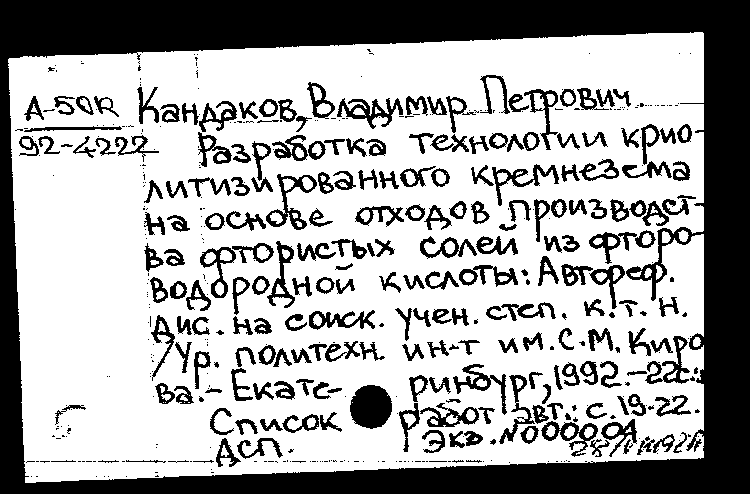 А-50К
92-4222
Кандаков, Владимир Петрович.
Разработка технологии крио-
литизированного кремнезема
на основе отходов производст-
ва фтористых солей из фторо-
водородной кислоты: Автореф.
дис. на соиск. учен. степ. к.т.н.
/Ур. политехн. ин-т им. С.М. Киро
ва.- Екате- ринбург, 1992.-22с.:
Список работ авт.: с.19-22.
ДСП. Экз. N000004